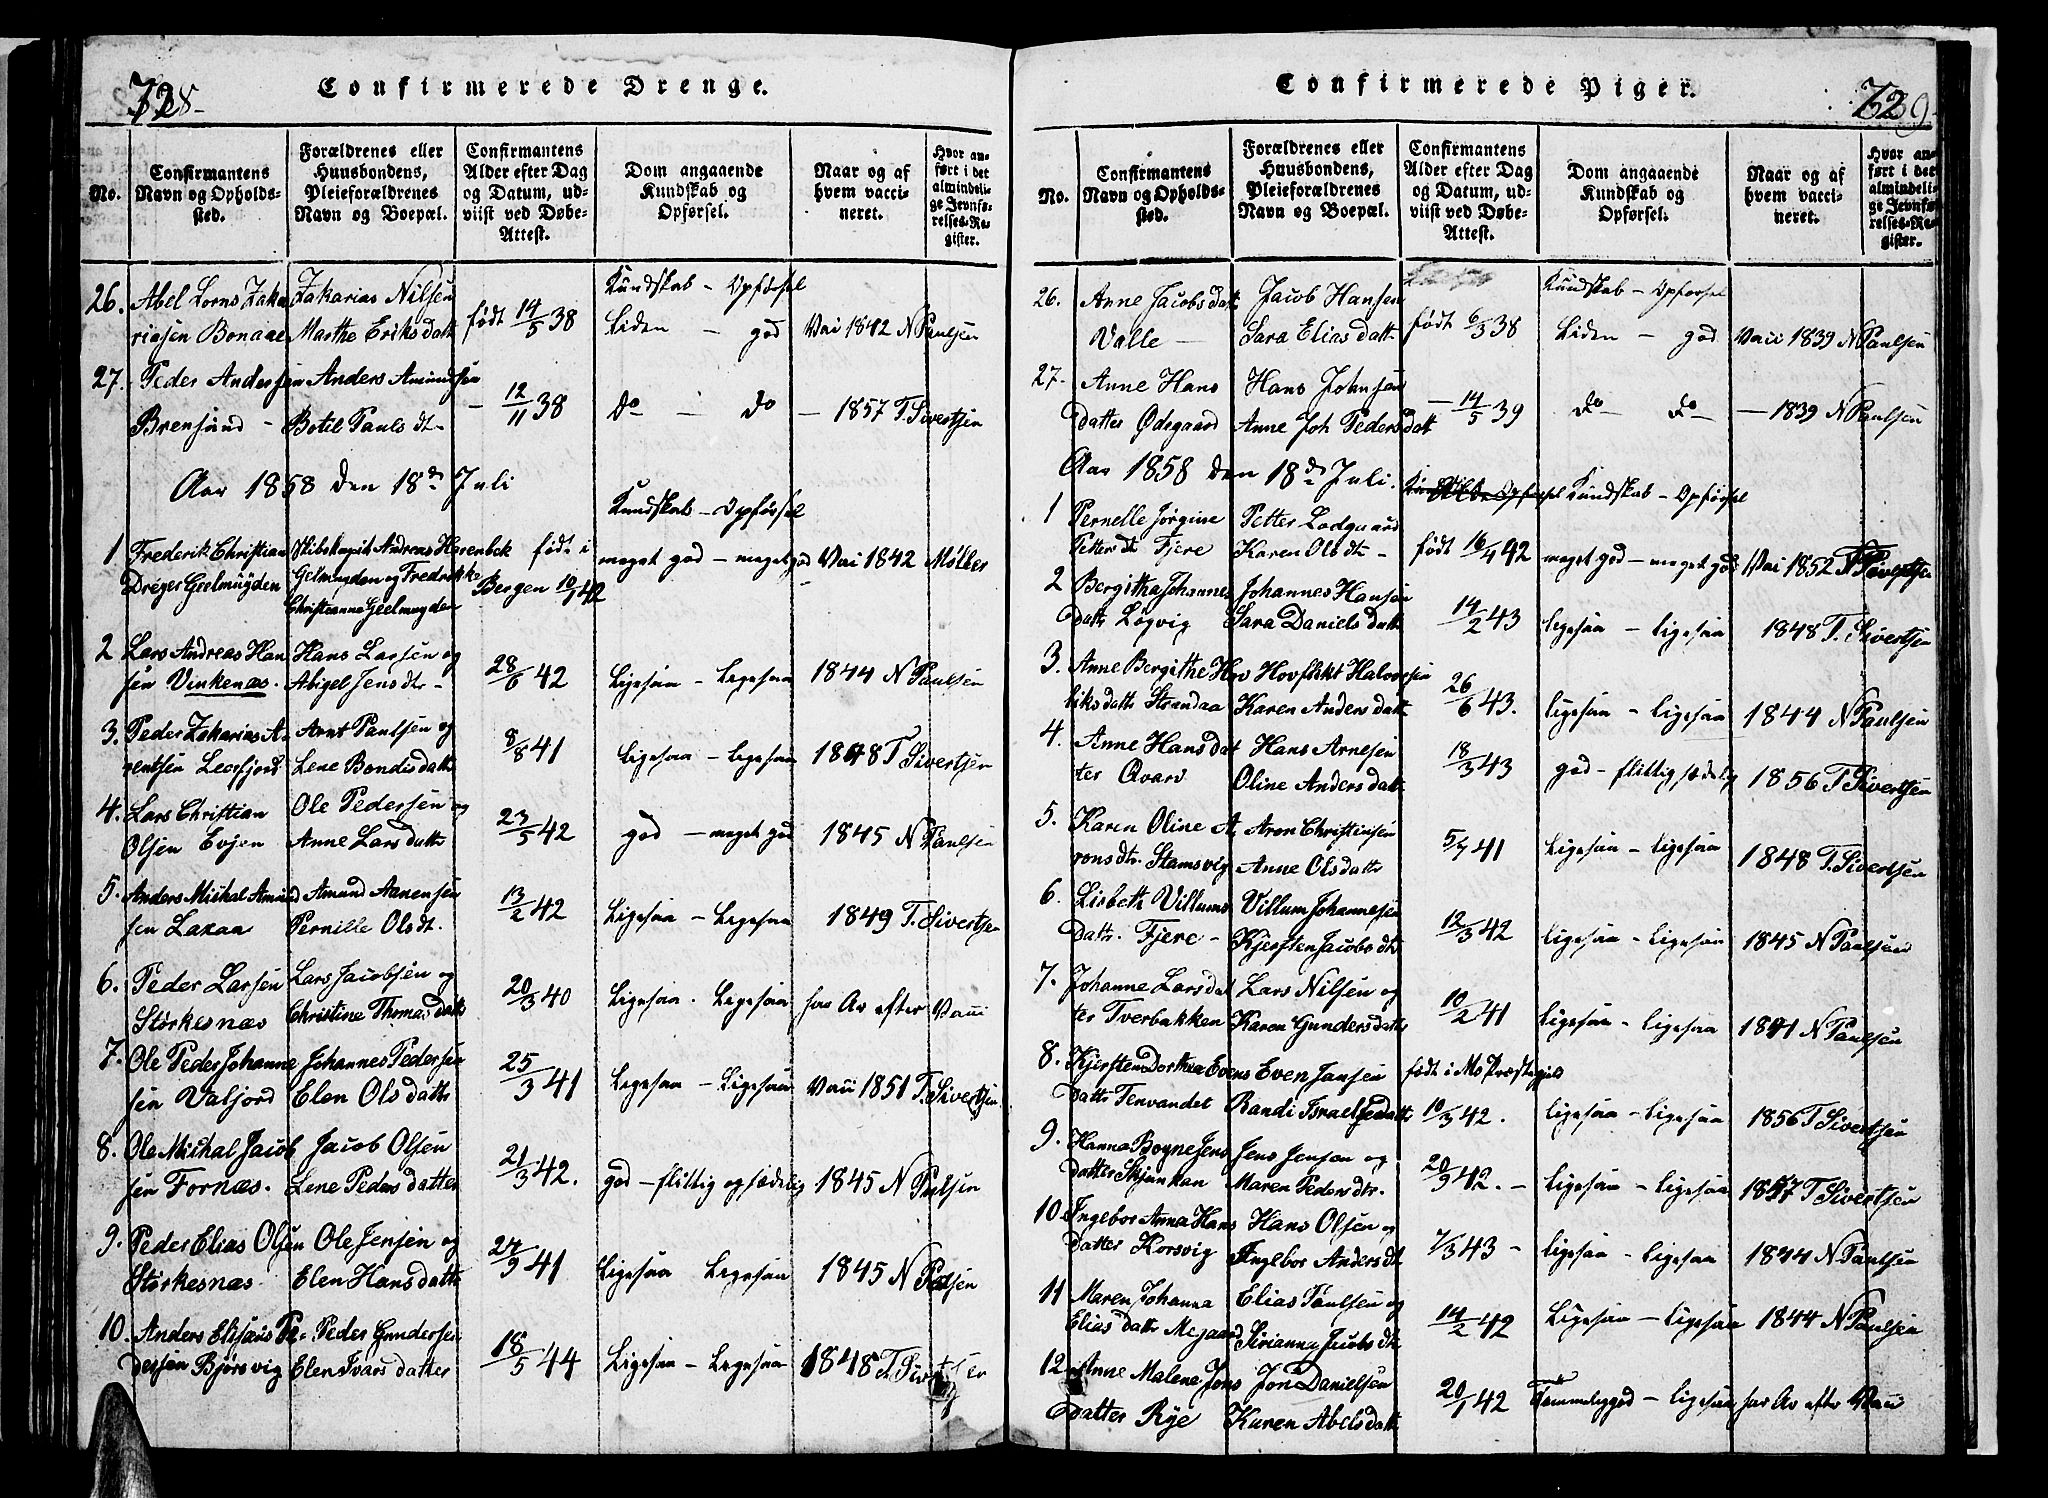 728
Confirmerede Drenge.
No.
Confirmantens Navn og Opholds-sted.
Forældrenes eller Huusbondens, Pleieforældrenes Navn og Boepæl.
Confirmantens Alder efter Dag og Datum, ud-viist ved Døbe-Attest.
Dom angaaende Kundskab og Opførsel.
Naar og af hvem vacci-neret.
Hvor an-ført i det almindeli-ge Jevnfø-relses-Re-gister.
Kundskab - Opførsel
26. Abel Lorns Zaka Zakarias Nilsen
riasen Bonaae Marthe Eriksdatt født 14/5 38 Liden - god Vac 1842 N Paulsen
27. Peder Andersen Anders Amundsen
Brensund - Botil Pauls dt - - 12/11 38 do - do - 1857 T. Sivertsen
Aar 1858 den 18de Juli
Kundskab - Opførsel
1 Frederik Christian Skibskapit Andreas Harenbek født i meget god - meget god Vac 1842 Møller
Dreyer Geelmuyden Gelmuyden og Fredrikke Bergen 10/9 42
Christianna Geelmuyden
2 Lars Andreas Han Hans Larsen og
sen Vinkenæs. Abigel Jensdtr - 28/6 42 Ligesaa - Ligesaa 1844 N Paulsen
3. Peder Zakarias A Arnt Paulsen og
rentsen Leosfjord Lene Bondisdattr 8/8 41 Ligesaa - Ligesaa 1848 T Sivertsen
4. Lars Christian Ole Pedersen og
Olsen Evjen Anne Larsdattr 27/5 42 god - meget god 1845 N Paulsen
5. Anders Mickal Amund Amund Aanensen
sen Laxaa Pernille Olsdt. 13/2 42 Ligesaa - Ligesaa 1849 T. Sivertsen
6. Peder Larsen Lars Jacobsen og
Størkesnæs Christine Thomasdattr 20/3 40 Ligesaa - Ligesaa har Ar efter Vacci
7. Ole Peder Johanne Johannes Pedersen
sen Valjord Elen Olsdattr 25/3 41 Ligesaa - Ligesaa Vacci 1851 T. Sivertsen
8. Ole Mickal Jacob Jacob Olsen
sen Fornæs. Lene Pedersdatter 21/3 42. god - flittig og sædelig 1845 N Paulsen
9. Peder Elias Olsen Ole Jensen og
Størkesnæs Elen Hansdattr 27/9 41 Ligesaa Ligesaa 1845 N Paulsen
10. Anders Elisæus Pe- Peder Gundersen
dersen Bjørsvig Elen Ivarsdatter 18/5 44 Ligesaa - Ligesaa 1848 T. Sivertsen
Confirmerede Piger.
No.
Confirmantens Navn og Opholds-sted.
Forældrenes eller Huusbondens, Pleieforældrenes Navn og Boepæl.
Confirmantens Alder efter Dag og Datum, ud-viist ved Døbe-Attest.
Dom angaaende Kundskab og Opførsel.
Naar og af hvem vacci-neret.
Hvor an-ført i det almindeli-ge Jevnfø-relses-Re-gister.
Kundskab - Opførsel
26. Anne Jacobsdatt Jacob Hansen
Valle - Sara Eliasdatt født 6/3 38 Liden - god Vacci 1839 N Paulsen
27. Anne Hans Hans Johnsen
datter Ødegaard Anne Joh Pedersdatt - 14/5 39 do - do - 1839 N Paulsen
Aar 1858 den 18de Juli. Kundskab - Opførsel
1 Pernelle Jørgine Petter Lodgaard
Petterdt Fjere Karen Olsdtr - født 16/4 42 meget god - meget god Vac 1852 T Sivertsen
2 Bergitha Johannes Johannes Hansen
dattr Løgvig Sara Danielsdattr 14/2 43 ligesaa - ligesaa 1848 T. Sivertsen
3. Anne Bergithe Hov Hovflikt Halvorsen
liksdattr Strandaa Karen Andersdatt 26/6 43. ligesaa - Ligesaa 1844 N Paulsen
4. Anne Hansdat Hans Arnesen
ter Qvarv Oline Andersdatt 18/3 43 god - flittig sædelig 1856 T Sivertsen
5. Karen Oline A Aron Christensen
ronsdtr. Stamsvig Anne Olsdattr 5/7 41 Ligesaa - ligesaa 1848 T. Sivertsen
6. Lisbeth Villums Villum Johannesen
dattr. Fjere - Kjersten Jacobsdtr 12/3 42 ligesaa - Ligesaa 1845 N Paulsen
7. Johanne Larsdat Lars Nilsen og
ter Tverbakken Karen Gundersdattr 10/2 41 Ligesaa - Ligesaa 1841 N Paulsen
8. Kjersten Dorthea Evens Even Jansen født i Mo Præstegjeld
dattr Tenvandet Randi Israelsdattr 10/3 42. ligesaa - ligesaa 1856 T Sivertsen
9. Hanna Bogne Jens Jens Jensen og
datter Skjunkan Maren Pedersdtr. 20/9 42. - ligesaa - ligesaa 1857 T Sivertsen
10. Ingebor Anna Hans Hans Olsen og
datter Korsvig Ingebor Andersdt 7/3 43 - ligesaa - ligesaa 1844 N Paulsen
11 Maren Johanna Elias Paulsen og
Eliasdattr Megaard Sirianna Jacobsdtr 14/2 42 Ligesaa - ligesaa 1844 N Paulsen
12. Anne Malene Jons Jon Danielsen
datter Rye Karen Abelsdatt 20/1 42 Temmeliggod - ligesaa har Ar efter Vacci